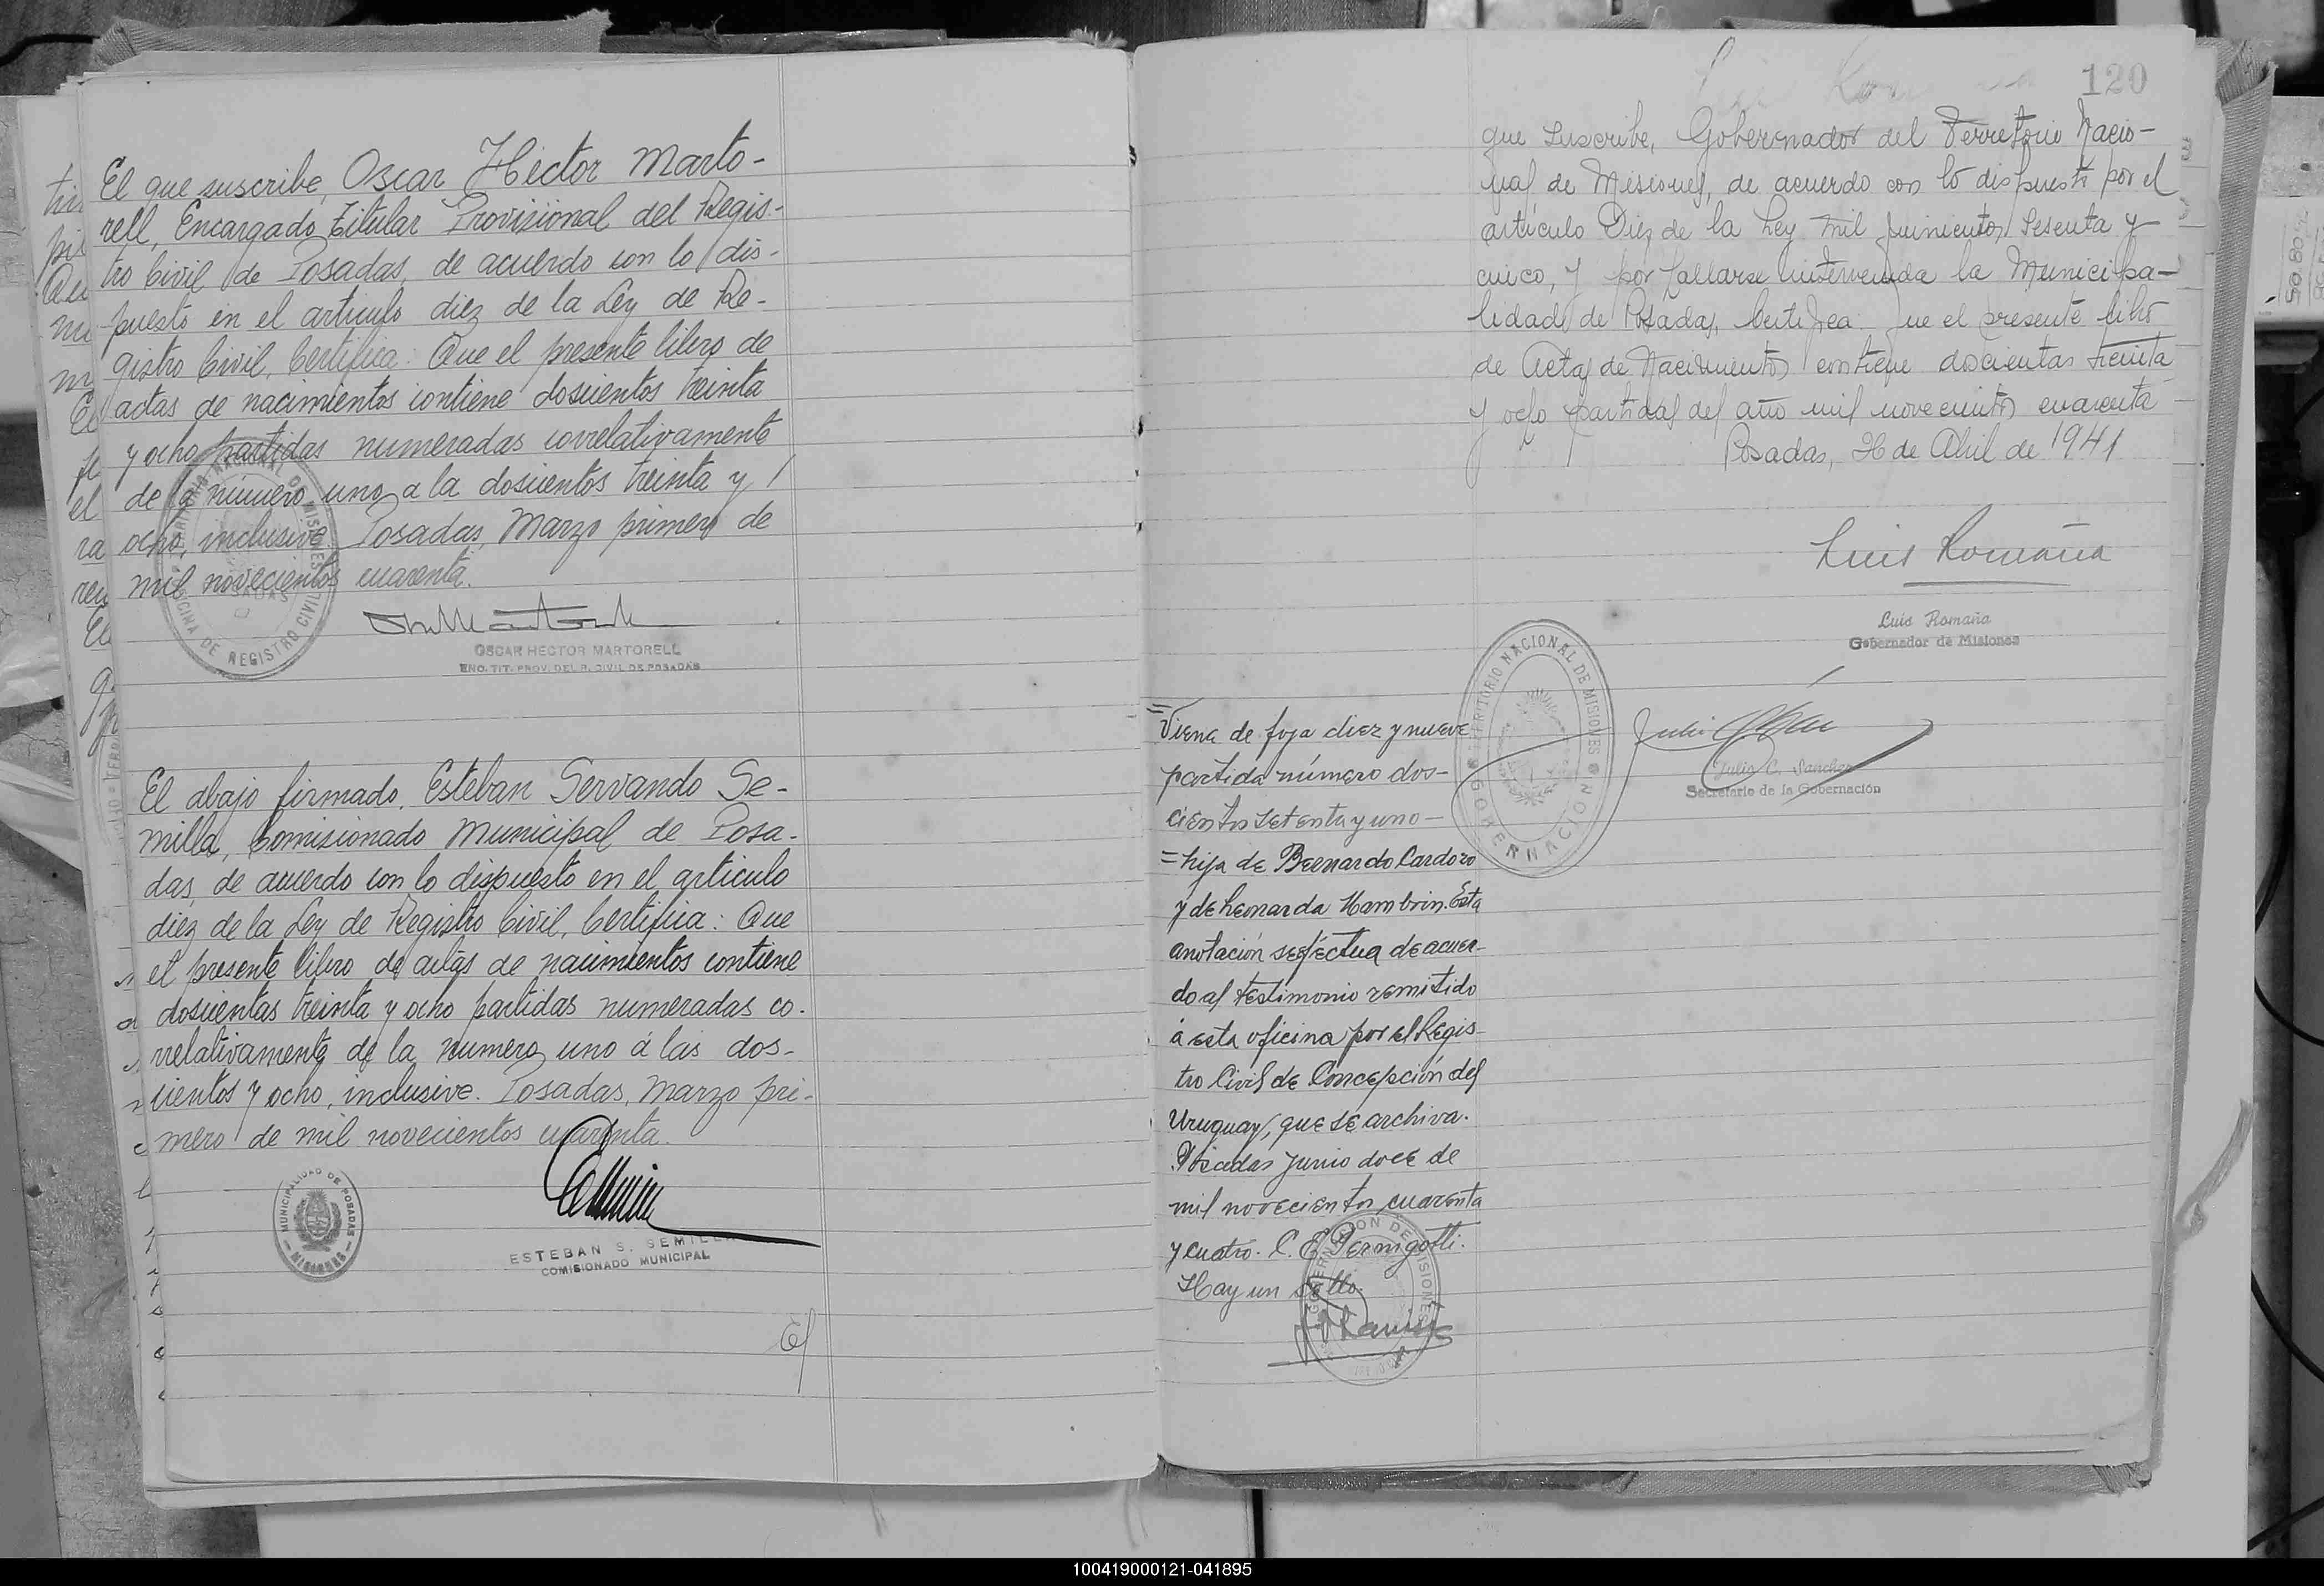 El que suscribe, Oscar Hector Marto-
rell, Encargado Titular Provisional del Regis-
tro Civil de Posadas, de acuerdo con lo dis-
puesto en el articulo diez de la Ley de Re-
gistro Civil, Certifica: Que el presente libro de
actas de nacimientos contiene doscientos treinta
y ocho partidas numeradas correlativamente
de la número uno a la doscientos treinta y
ocho, inclusive. Posadas, Marzo primero de
mil novecientos cuarenta.
OSCAR HECTOR MARTORELL
ENC. TIT. PROV. DEL R. CIVIL DE POSADAS
El abajo firmado, Esteban Servando Se-
milla, Comisionado Municipal de Posa-
das, de acuerdo con lo dispuesto en el articulo
diez de la Ley de Registro Civil, Certifica: Que
el presente libro de actas de nacimientos contiene
doscientas treinta y ocho partidas numeradas co-
rrelativamente de la numero uno á las dos-
cientos y ocho, inclusive. Posadas, Marzo pri-
mero de mil novecientos cuarenta.
MUNICIPALIDAD DE POSADAS
MISIONES
ESTEBAN S. SEMILLA
COMISIONADO MUNICIPAL
El
120
que suscribe, Gobernador del Territorio Nacio-
nal de Misiones, de acuerdo con lo dispuesto por el
artículo Diez de la Ley mil quinientos sesenta y
cinco, y por hallarse intervenida la Municipa-
lidad de Posadas, Certifica que el presente libro
de Actas de Nacimientos contiene doscientas treinta
y ocho partidas del año mil novecientos cuarenta
Posadas, 26 de Abril de 1941
Luis Romaña
Luis Romaña
Gobernador de Misiones
TERRITORIO NACIONAL DE MISIONES
GOBERNACION
Julio C. Sanchez
Secretario de la Gobernación
=Viene de foja diez y nueve
partida número dos-
cientos setenta y uno-
=hija de Bernardo Cardozo
y de Leonarda Mambrin. Esta
anotación se efectua de acuer-
do al testimonio remitido
á esta oficina por el Regis-
tro Civil de Concepción del
Uruguay, que se archiva.
Posadas Junio doce de
mil novecientos cuarenta
y cuatro. C. E. Pernigotti.
Hay un sello.
100419000121-041895